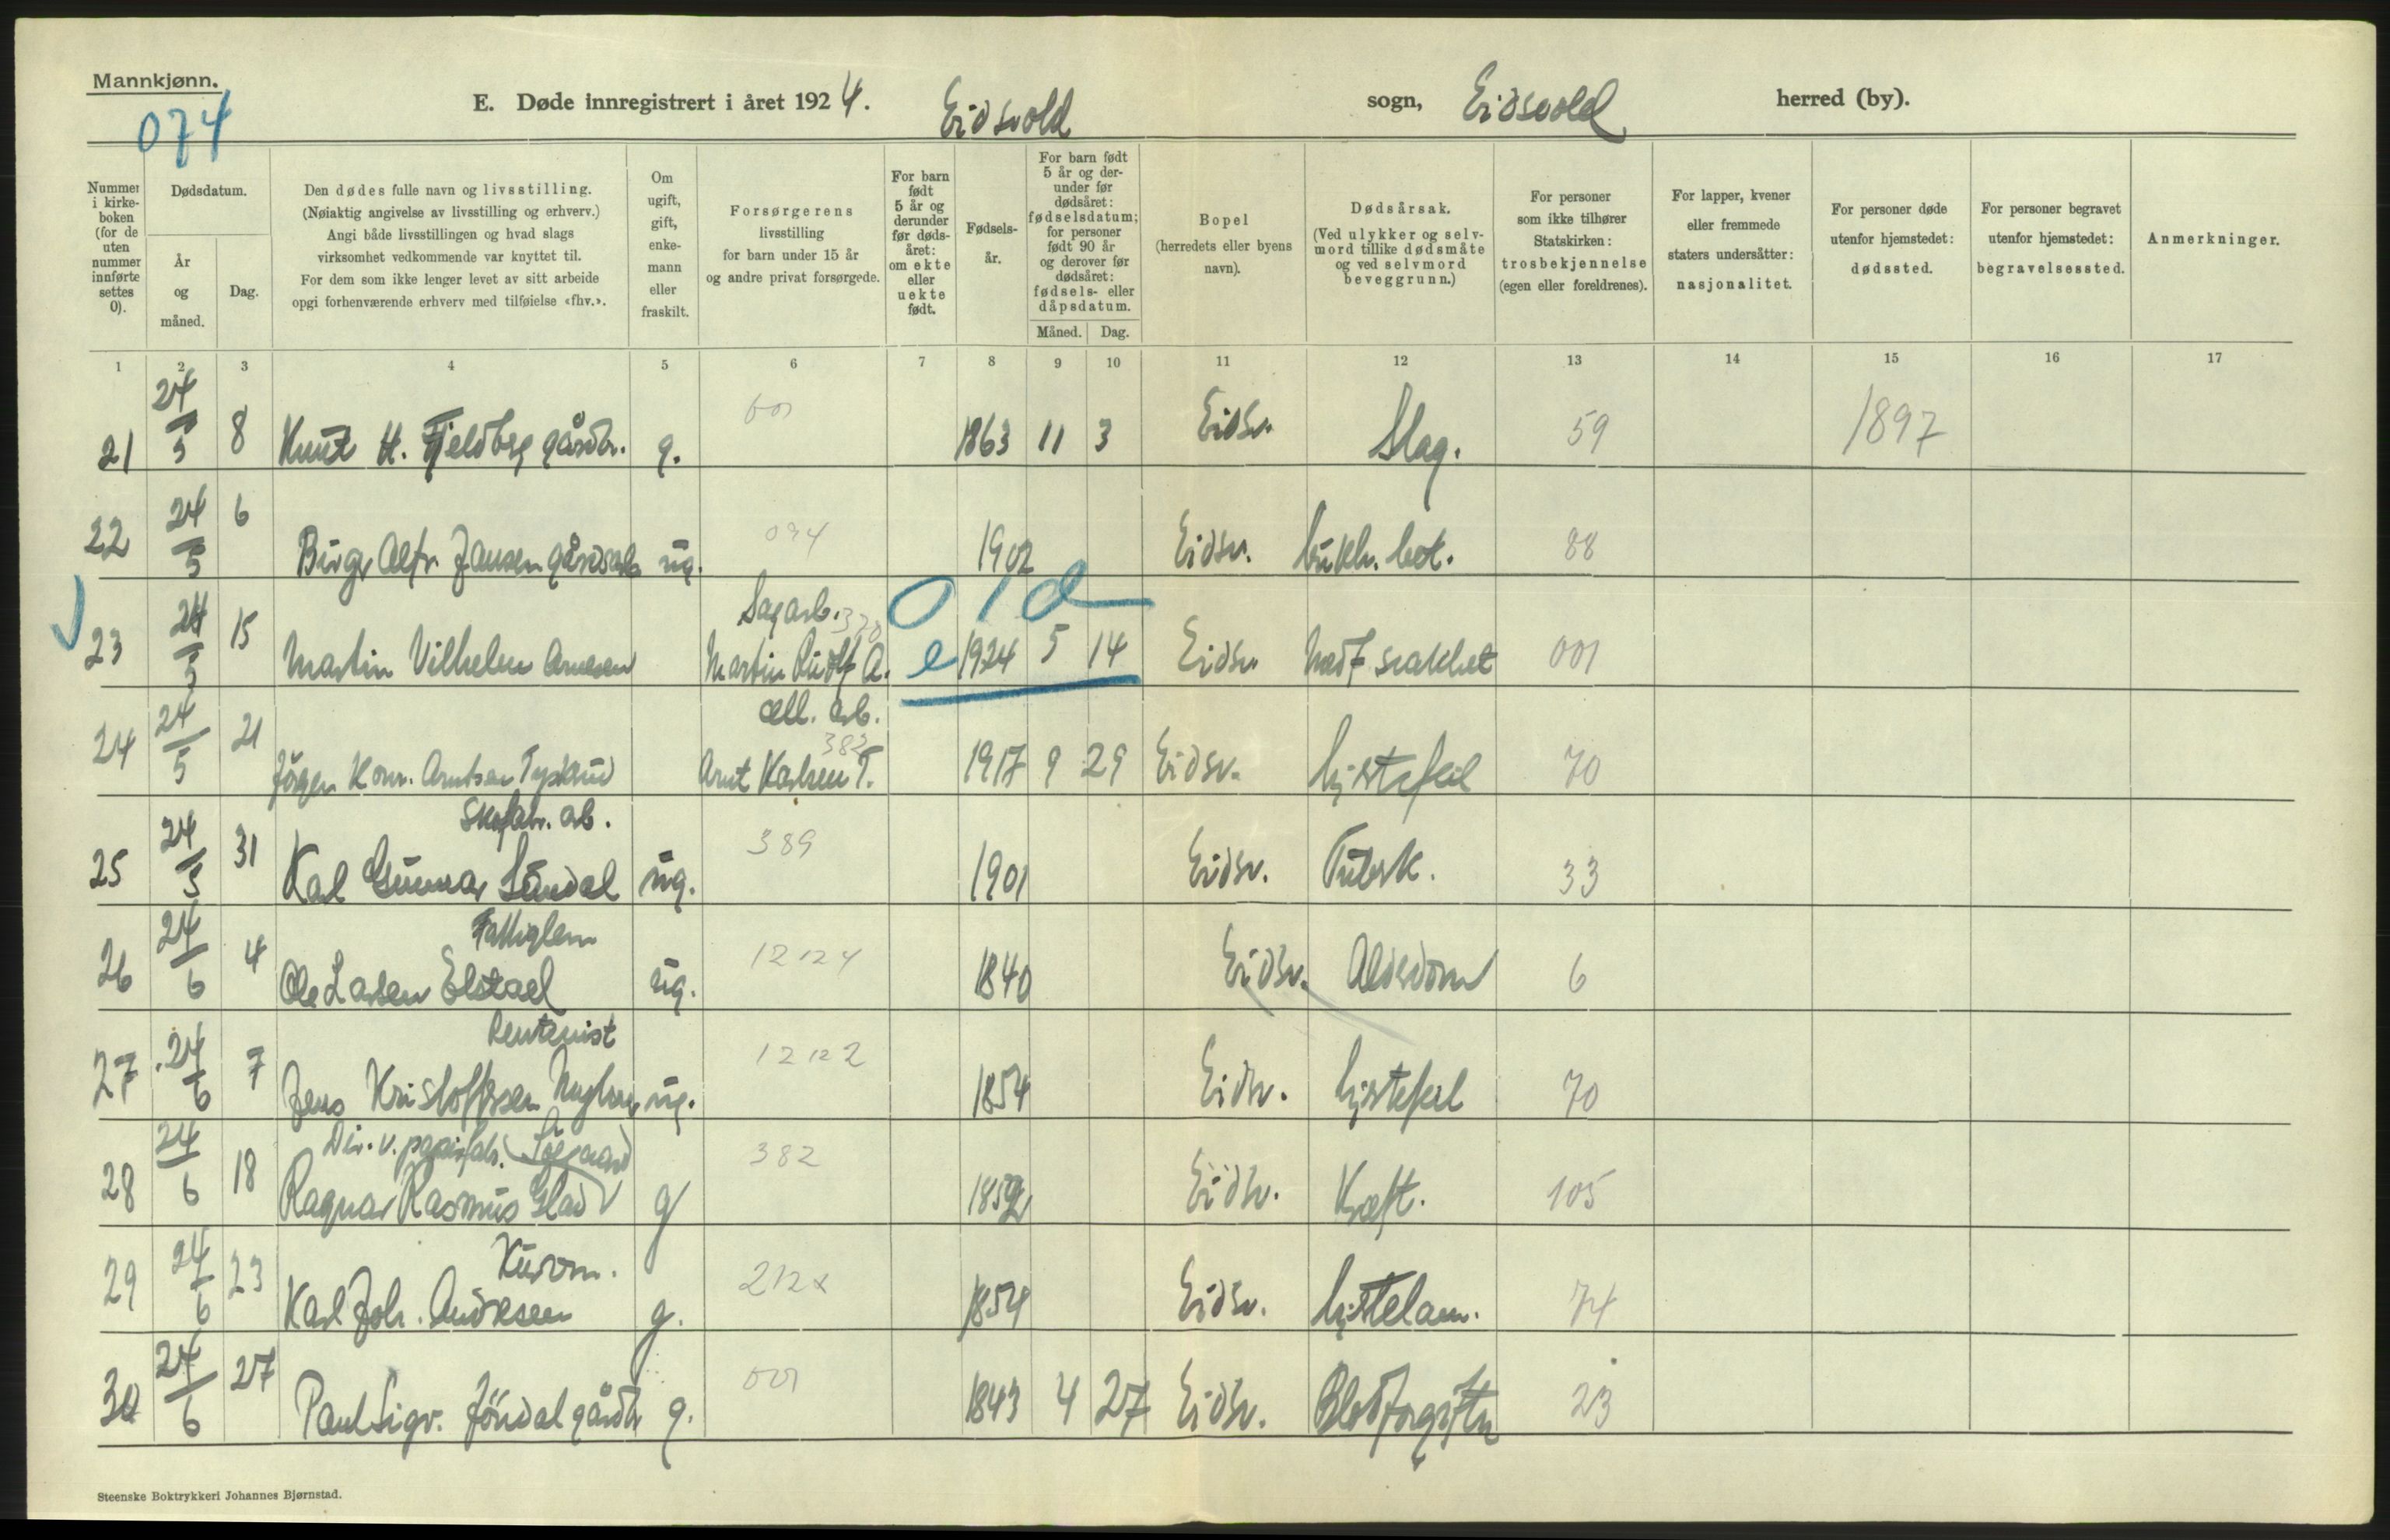 Mannkjønn.
074
E. Døde innregistrert i året 1924. Eidsvold sogn, Eidsvold herred (by).
Nummer i kirkeboken (for de uten nummer innførte settes 0).
Dødsdatum.
År og måned.
Dag.
Den dødes fulle navn og livsstilling.
(Nøiaktig angivelse av livsstilling og erhverv.)
Angi både livsstillingen og hvad slags
virksomhet vedkommende var knyttet til.
For dem som ikke lenger levet av sitt arbeide
opgi forhenværende erhverv med tilføielse «fhv.».
Om ugift, gift, enkemann eller fraskilt.
Forsørgerens
livsstilling
for barn under 15 år
og andre privat forsørgede.
For barn født 5 år og derunder før dødsåret: om ekte eller uekte født.
Fødselsår.
For barn født 5 år og derunder før dødsåret: fødselsdatum; for personer født 90 år og derover før dødsåret: fødsels- eller dåpsdatum.
Måned. Dag.
Bopel
(herredets eller byens
navn).
Dødsårsak.
(Ved ulykker og selv-
mord tillike dødsmåte
og ved selvmord
beveggrunn.)
For personer
som ikke tilhører
Statskirken:
trosbekjennelse
(egen eller foreldrenes).
For lapper, kvener
eller fremmede
staters undersåtter:
nasjonalitet.
For personer døde
utenfor hjemstedet:
dødssted.
For personer begravet
utenfor hjemstedet:
begravelsessted.
Anmerkninger.
1 2 3 4 5 6 7 8 9 10 11 12 13 14 15 16 17
21 24/5 8 Knut H. Fjeldberg gårdbr. g. 001 1863 11 3 Eidsv. Slag. 59 1897
22 24/5 6 Birger Alfr. Jansen gårdsarb ug. 034 1902 Eidsv. 88
Sagarb. 370 01d
23 24/5 15 Martin Vilhelm Arnesen Martin Rudolf A. e 1924 5 14 Eidsv. Medf svakhet 001
cell. arb.
382
24 24/5 21 Jörgen Konr. Arntsen Tyskrud Arnt Karlsen T. 1917 9 29 Eidsv. hjertefeil 70
Skofabr. arb.
25 24/5 31 Karl Gunnar Sundal ug. 389 1901 Eidsv. Tuberk. 33
Fattiglem
26 24/6 4 Ole Larsen Elstad ug. 12124 1840 Eidsv. Alderdom 6
Rentenist
27 24/6 7 Jens Kristoffersen ug. 12122 1854 Eidsv. hjertefeil 70
Dir. v. papirfabr.
28 24/6 18 Ragnar Rasmus Glad g 382 Eidsv. Kræft. 105
Kurvm.
29 24/6 23 Karl Joh. Andresen g. 212x 1854 Eidsv. hjertelam. 74
30 24/6 27 Paul Sigv. Jöndal gårdbr g. 001 1843 4 27 Eidsv. Blodforgiftn 23
Steenske Boktrykkeri Johannes Bjørnstad.